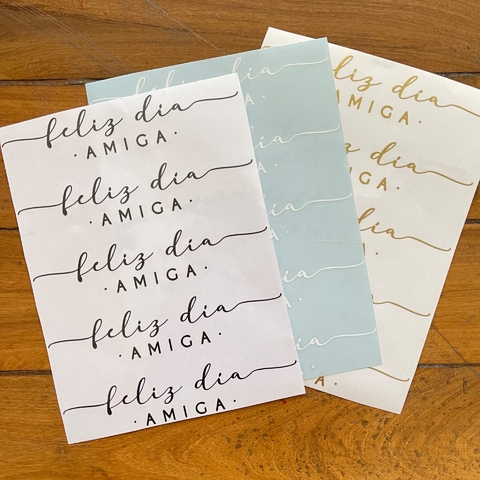 feliz día
·AMIGA·
feliz día
·AMIGA·
feliz día
·AMIGA·
feliz día
·AMIGA·
feliz día
·AMIGA·
feliz día
feliz día
AMIGA·
día
AMIGA·
día